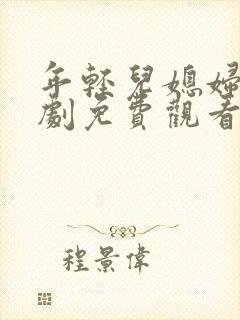 年輕兒媳婦
劇免費觀看
程景偉